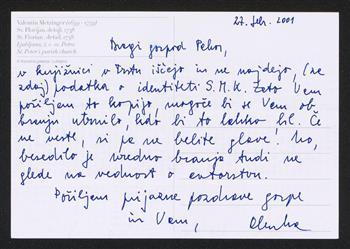 Valentin Metzinger (1699 - 1759)
Sv. Florijan, detajl, 1738
St. Florian, detail, 1738
Ljubljana, ž. c. sv. Petra
St. Peter's parish church
27. feb. 2001
Dragi gospod Pahor,
v knjižnici v Trstu iščejo in ne najdejo, (za
zdaj) podatka o identiteti S.M.K. Zato Vam
pošiljam to kopijo, mogoče bi se Vam ob
branju utrnilo, kdo bi to lahko bil. Če
ne veste, si pa ne belite glave! No,
besedilo je vredno branja tudi ne
glede na vednost o avtorstvu.
Pošiljam prijazne pozdrave gospe
in Vam,